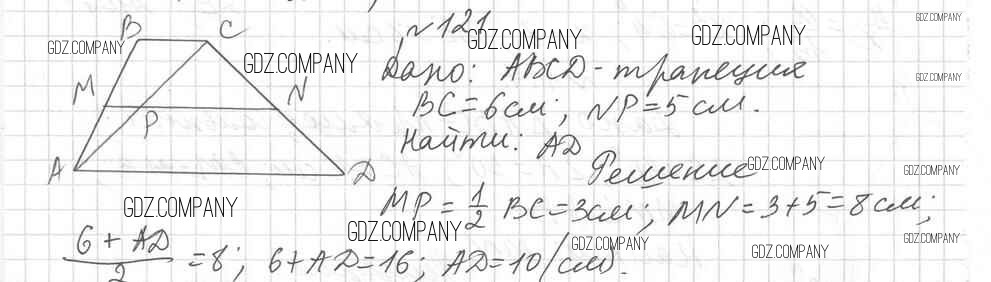 B C
M N
P
A D
№121
Дано: ABCD - трапеция
BC = 6 см; NP = 5 см.
Найти: AD
Решение
MP = 1/2 BC = 3 см; MN = 3 + 5 = 8 см;
(6 + AD)/2 = 8; 6 + AD = 16; AD = 10 (см).
GDZ.COMPANY
GDZ.COMPANY
GDZ.COMPANY
GDZ.COMPANY
GDZ.COMPANY
GDZ.COMPANY
GDZ.COMPANY
GDZ.COMPANY
GDZ.COMPANY
GDZ.COMPANY
GDZ.COMPANY
GDZ.COMPANY
GDZ.COMPANY